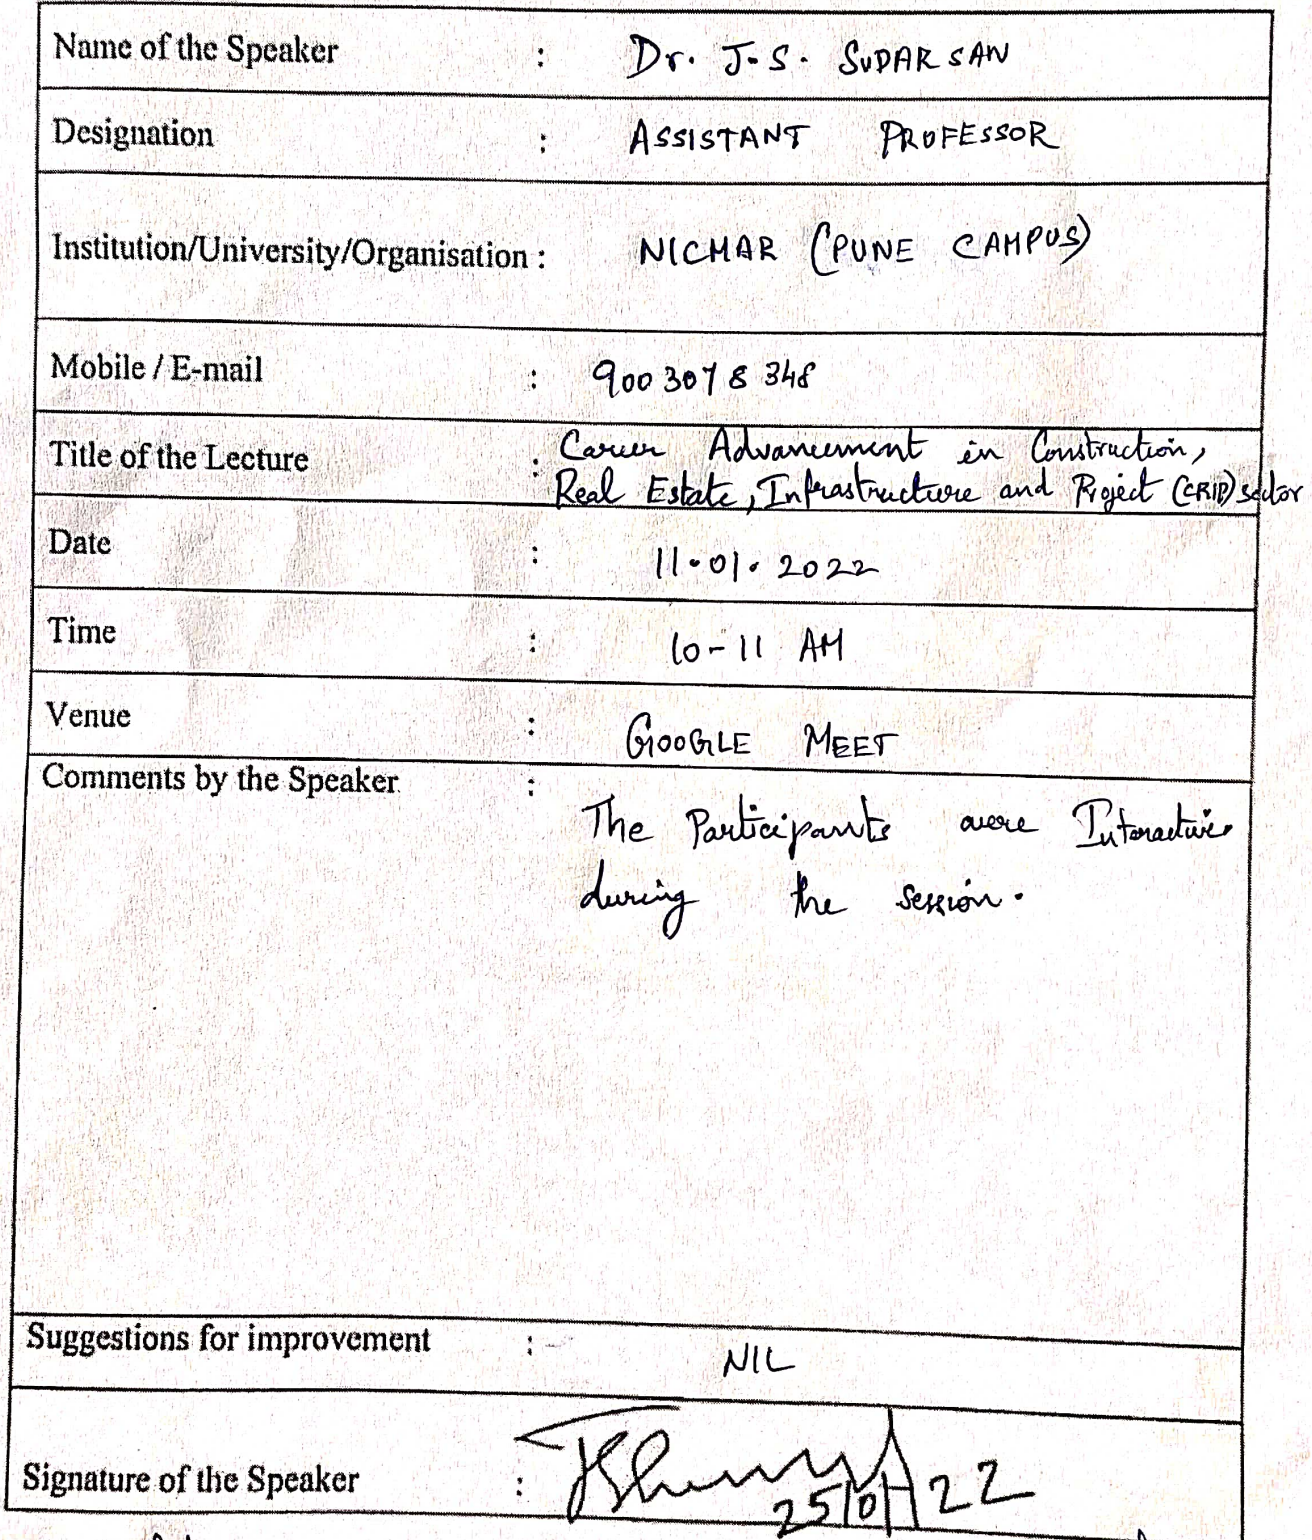 Name of the Speaker : Dr. J.S. SUDARSAN
Designation : ASSISTANT PROFESSOR
Institution/University/Organisation : NICMAR (PUNE CAMPUS)
Mobile / E-mail : 9003078348
Title of the Lecture : Career Advancement in Construction,
Real Estate, Infrastructure and Project (CRIP) sector
Date : 11.01.2022
Time : 10-11 AM
Venue : GOOGLE MEET
Comments by the Speaker : The Participants were Interactive
during the session.
Suggestions for improvement : NIL
Signature of the Speaker :
25/01/22